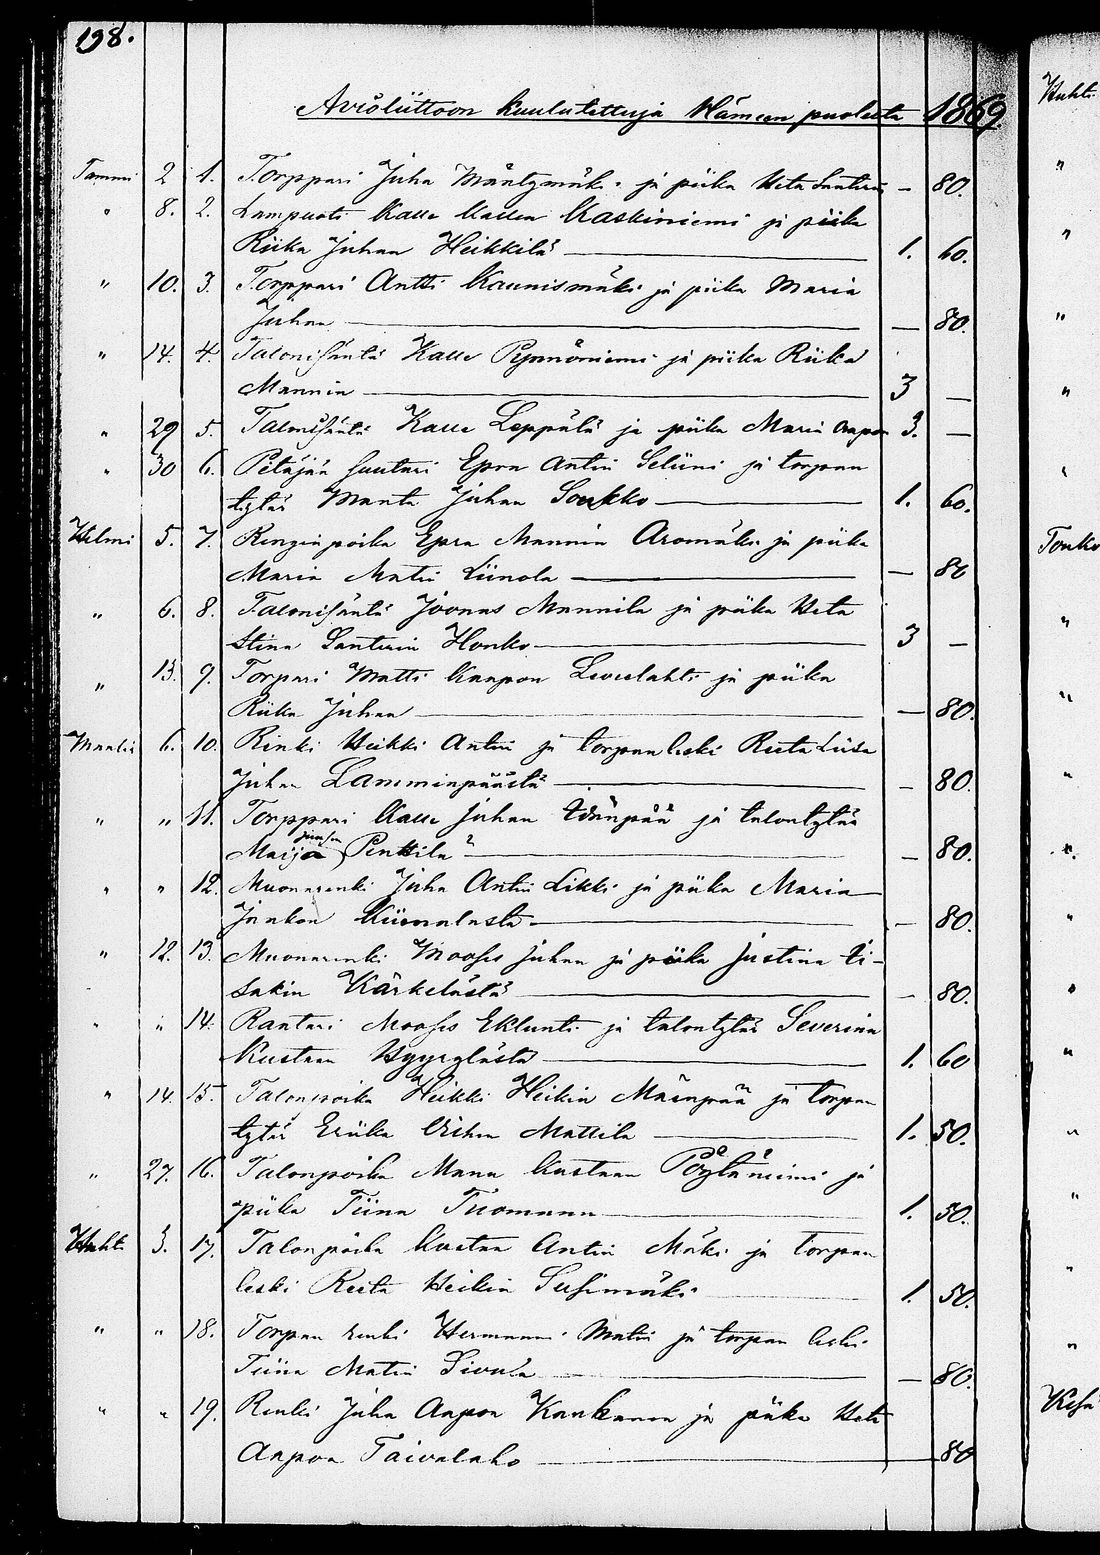 198.
Avioliittoon kuulutettuja Hämeen puolesta 1869.
Tammi 2 1. Torppari Juha Mäntymäki ja piika Heta Santerin — 80.
" 8. 2. Lampuoti Kalle Kallen Kaskiniemi ja piika
Riika Juhan Heikkilä 1. 60.
" 10. 3. Torppari Antti Kaunismäki ja piika Maria
Juhan — 80.
" 14. 4. Talonisäntä Kalle Pynnöniemi ja piika Riika
Mannin 3 —
" 29 5. Talonisäntä Kalle Leppälä ja piika Maria Aapon 3. —
" 30 6. Petäjän suutari Epra Antin Seliini ja torpan
tytär Manta Juhan Soukko 1. 60.
Helmi 5. 7. Renginpoika Epra Mannin Aromäki ja piika
Maria Matin Liinola — 80
" 6. 8. Talonisäntä Joonas Mannila ja piika Heta
Stina Santerin Honko 3 —
" 13. 9. Torpari Matti Kaapon Levelahti ja piika
Riika Juhan — 80.
Maalis 6. 10. Renki Heikki Antin ja torpan leski Reeta Liisa
Juhan Lamminpäästä — 80.
" " 11. Torppari Kalle Juhan ja talontytär
Maija Juhan Penttilä — 80.
" " 12. Muonarenki Juha Antin Likki ja piika Maria
Jaakon — 80.
" 12. 13. Muonarenki Mooses Juhan ja piika Justiina Ii-
sakin Kärkelästä — 80.
" " 14. Rantari Mooses Eklunti ja talontytär Severina
Kustaan Hyyrylästä 1. 60
" 14. 15. Talonpoika Heikki Heikin Mäenpää ja torpan
tytär Eriika Vilhon Mattila 1. 50.
" 27. 16. Talonpoika Manu Kustaan Pöytäniemi ja
piika Tiina Tuomaan 1. 50.
Huhti 3. 17. Talonpoika Kustaa Antin Mäki ja torpan
leski Reeta Heikin Susimäki 1. 50.
" " 18. Torpan renki Hermanni Matin ja torpan leski
Tiina Matin Sivula — 80.
" " 19. Renki Juha Aapon Kankaanen ja piika Heta
Aapon Taivalaho 80
Huhti
"
"
"
"
"
Touko
"
"
"
"
"
"
"
"
"
"
Kesä